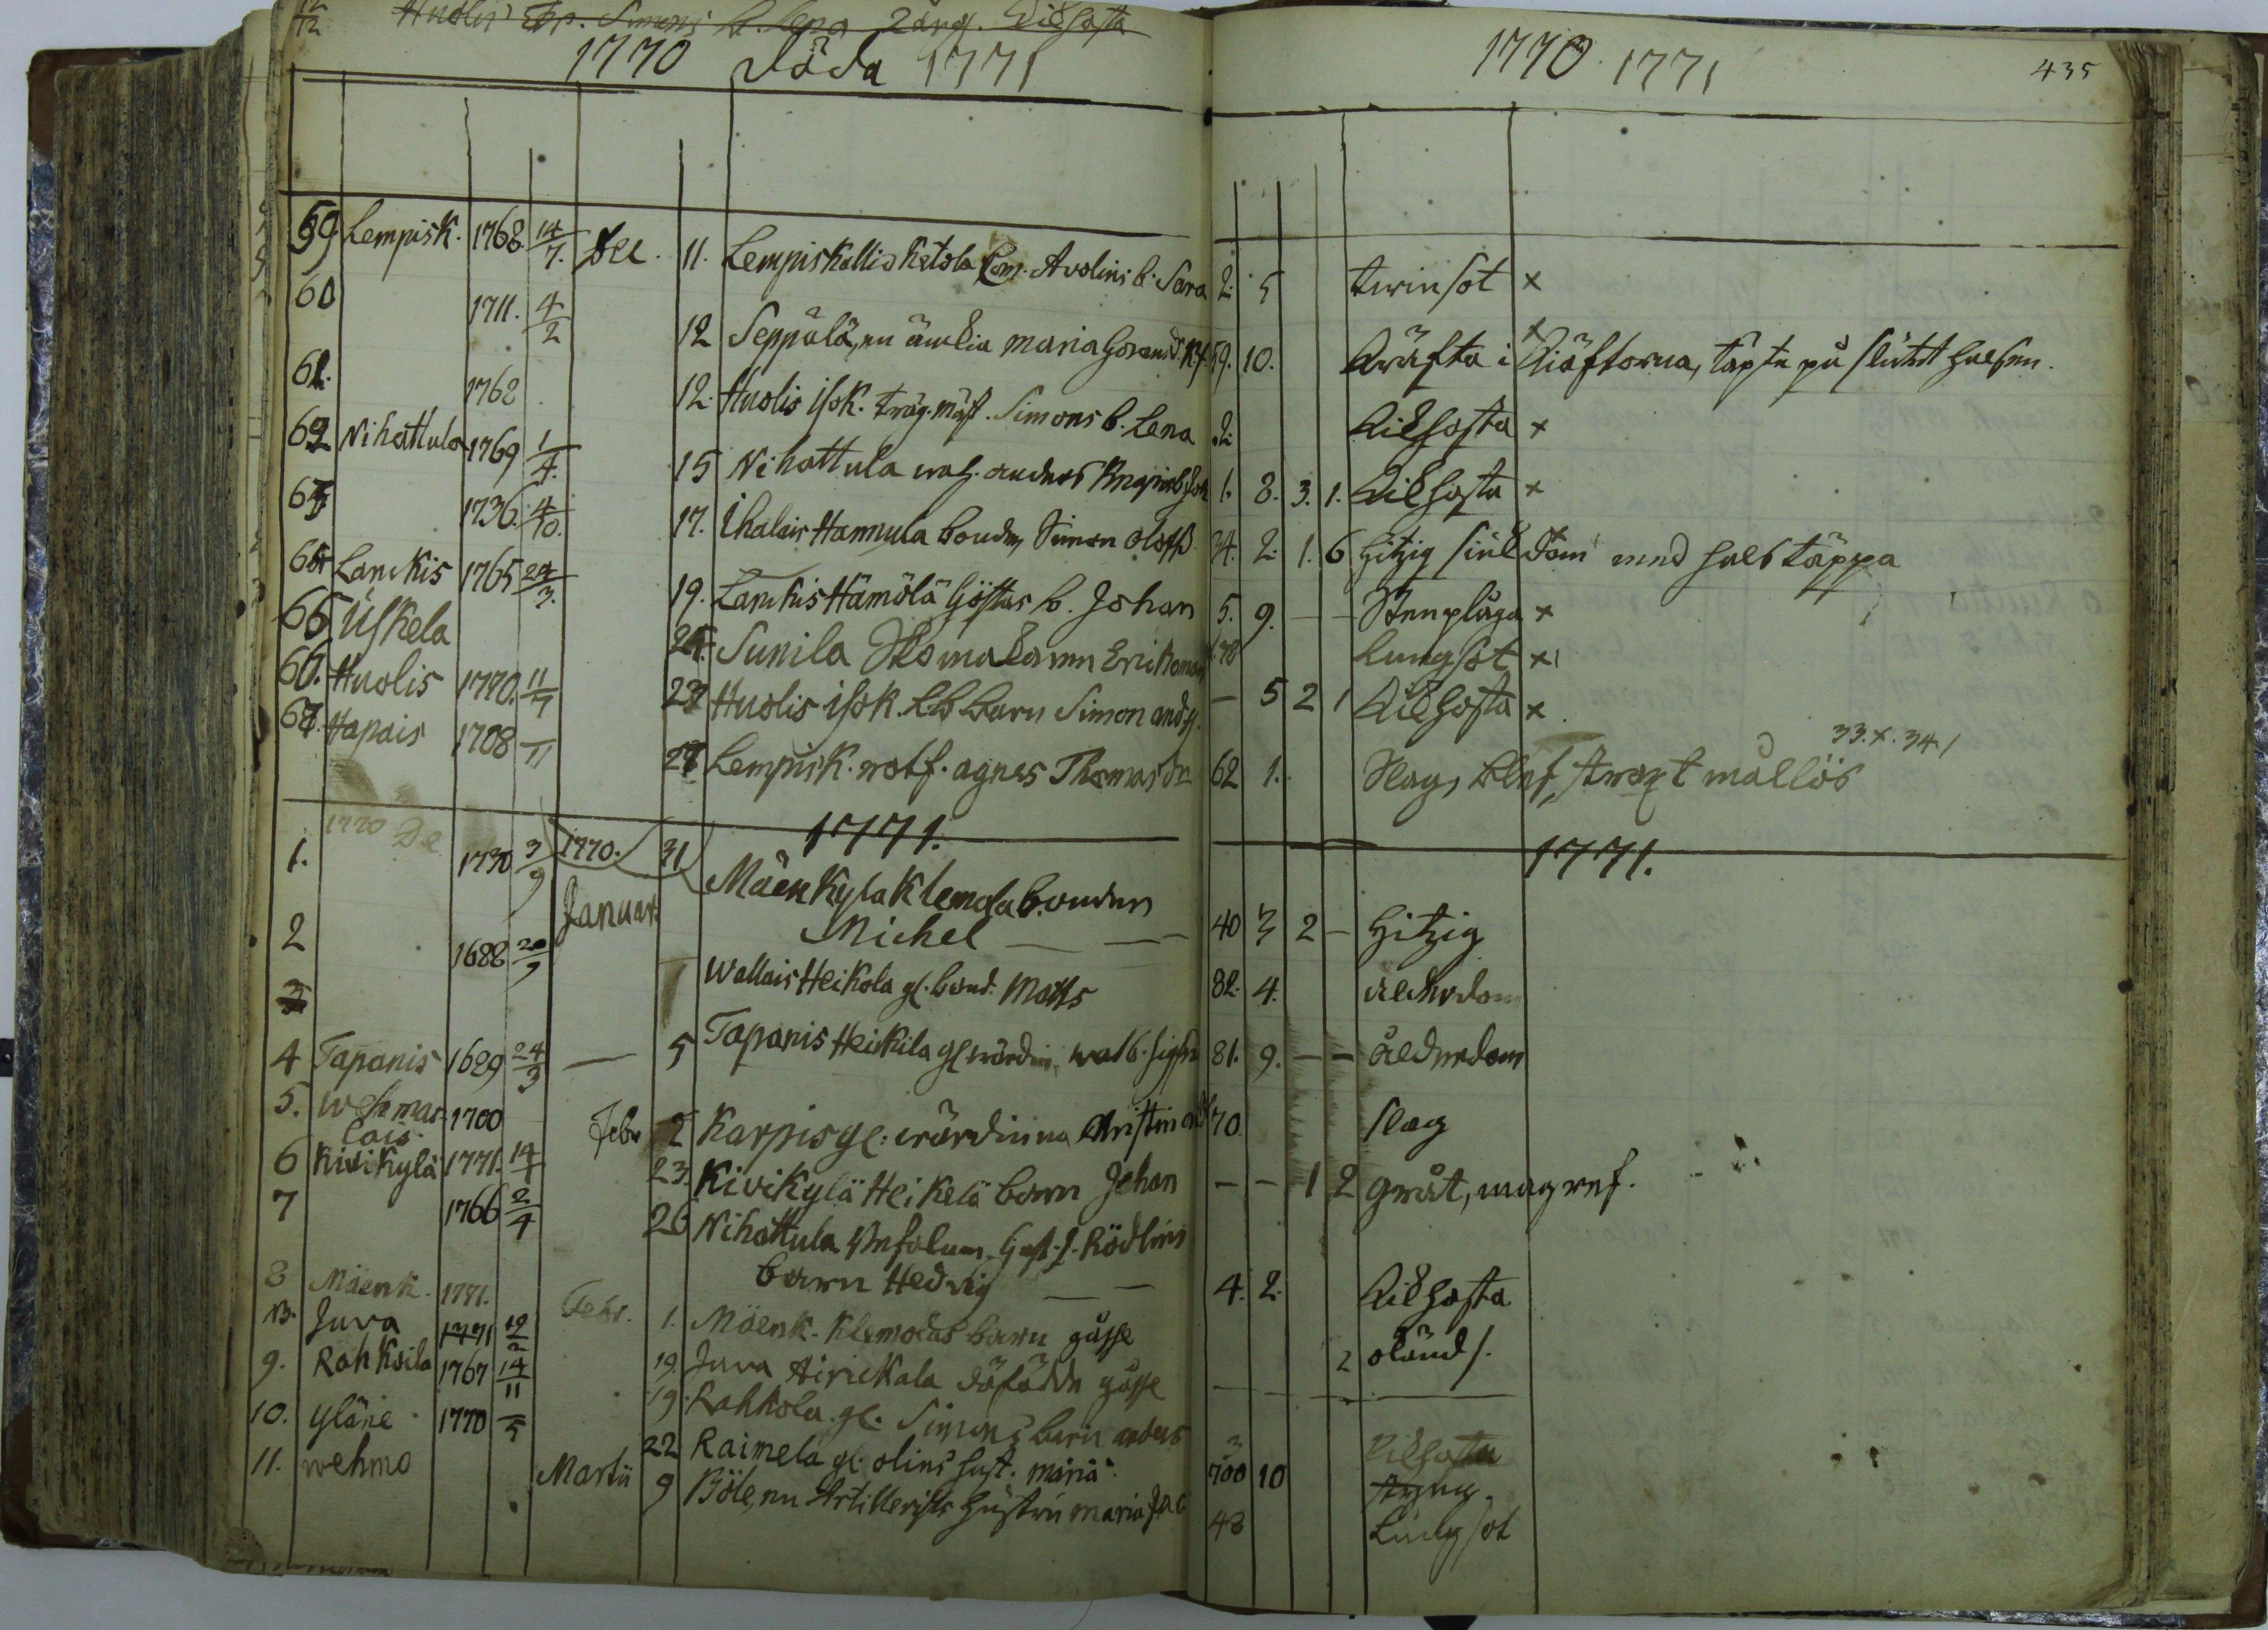 Huolis Simons b. Lena 2 årig. Kikhosta
1770 Döda 1771
1770. 1771
435
59 Lempisk. 1768. 14/7. Dec. 11. Lempiskallio Ketola Com. Avolins b. Sara 2. 5 twinsot x
60 1711. 4/2 12 Seppälä, en änckia Maria 59. 10. kräfta i kiäftorna, täpte på slutet halsen.
61. 1768 12. Huolis isok. träg.mäst. Simons b. Lena 2. Kikhosta x
62 Nihattula 1769 1/4. 15 Nihattula anders 1. 8. 3. 1. Kikhosta x
63 1736. 4/10. 17. Ihalais Hannula bonden Simon Olofss. 34. 2. 1. 6 hitzig siukdom med halstäppa
64 Lanckis 1765 24/3. 19. Lanckis Hämölä Göstas b. Johan 5. 9. — — Stenplåga x
65 Uskela 24. Sunila Erik 78 lungsot x
66. Huolis 1770. 11/7 27 Huolis isok. barn Simon — 5 2 1 Kikhosta x
67. Hapais 1708 —/11 27 Lempisk. rotf. agnes Thomasdr 62 1. Slag, blef straxt mållös
33. x. 34 /
1770 De
1771.
1771.
1. 1730 3/9 1770. 31 Mäenkyla Klemola bonden
Januar. Michel — — 40 3 2 — hitzig
2 1688 20/9 Wallais Heikola gl. bond. Matts 82. 4. ålderdom
3
4 Tapanis 1689 24/3 — 5 Tapanis Heikila gl. wärdin. 81. 9. — — ålderdom
5. Wehmas- 1700 Febr 2 Karpis gl. wärdinna Christin 70. slag
lais.
6 Kivikylä 1771. 14/1 23. Kivikylä Heikelä barn Johan — — 1 2 gråt, magref.
7 1766 2/4 26 Nihattula Rödlins
barn Hedvig — — 4. 2. Kikhosta
8 Mäenk. 1771. Febr. 1. Mäenk. Klemolas barn gåsse 2 okänd s.
B. Juva 1771 19/2 19. Juva Airickala döfödde gåsse — — —
9. Rahkoila 1767 14/11 19. Rahkola gl. Simons barn anders 3 Kikhosta
10. Yläne 1770 —/5 22 Raimela gl. olins hust. maria 10 styng.
11. wehmo Martii 9 Böle, en Artillerists hustru maria 48 Lungsot